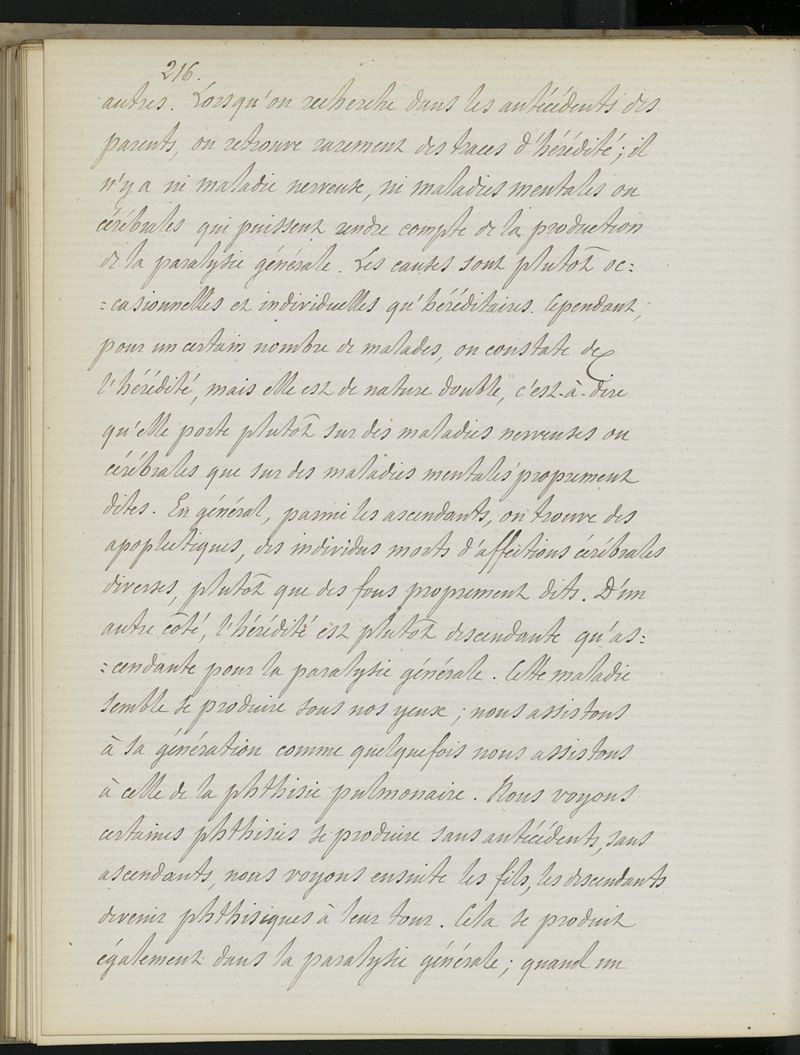 216.
autres. Lorsqu'on recherche dans les antécédents des
parents, on retrouve rarement des traces d'hérédité; il
n'y a ni maladie nerveuse, ni maladies mentales ou
cérébrales qui puissent rendre compte de la production
de la paralysie générale. Les causes sont plutôt oc=
=casionnelles et individuelles qu'héréditaires. Cependant,
pour un certain nombre de malades, on constate de
l'hérédité, mais elle est de nature double, c'est-à-dire
qu'elle porte plutôt sur des maladies nerveuses ou
cérébrales que sur des maladies mentales proprement
dites. En général, parmi les ascendants, on trouve des
apoplectiques, des individus morts d'affections cérébrales
diverses, plutôt que des fous proprement dits. D'un
autre côté, l'hérédité est plutôt descendante qu'as=
=cendante pour la paralysie générale. Cette maladie
semble se produire sous nos yeux; nous assistons
à sa génération comme quelquefois nous assistons
à celle de la phthisie pulmonaire. Nous voyons
certaines phthisies se produire sans antécédents, sans
ascendants, nous voyons ensuite les fils, les descendants
devenir phthisiques à leur tour. Cela se produit
également dans la paralysie générale; quand un